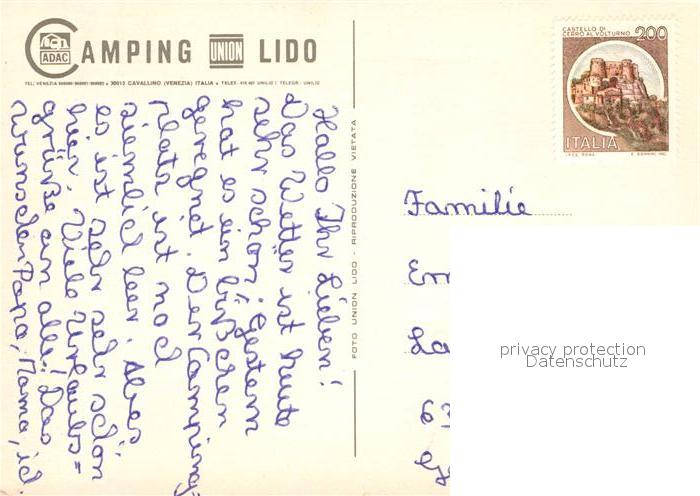 CAMPING UNION LIDO
ADAC
TEL. VENEZIA 30013 CAVALLINO (VENEZIA) ITALIA • TELEX 410 407 UNILIO I TELEGR. UNILIO
Hallo Ihr Lieben!
Das Wetter ist heute
sehr schön; Gestern
hat es ein bißchen
geregnet. Der Camping=
platz ist noch
ziemlich leer. Aber
es ist sehr sehr schön
hier. Viele Urlaubs=
grüße an alle! Das
wünschen Papa, Mama, ich
FOTO UNION LIDO - RIPRODUZIONE VIETATA
CASTELLO DI
CERRO AL VOLTURNO 200
ITALIA
I.P.Z.S. ROMA
Familie
Em
La
63
Ge
privacy protection
Datenschutz